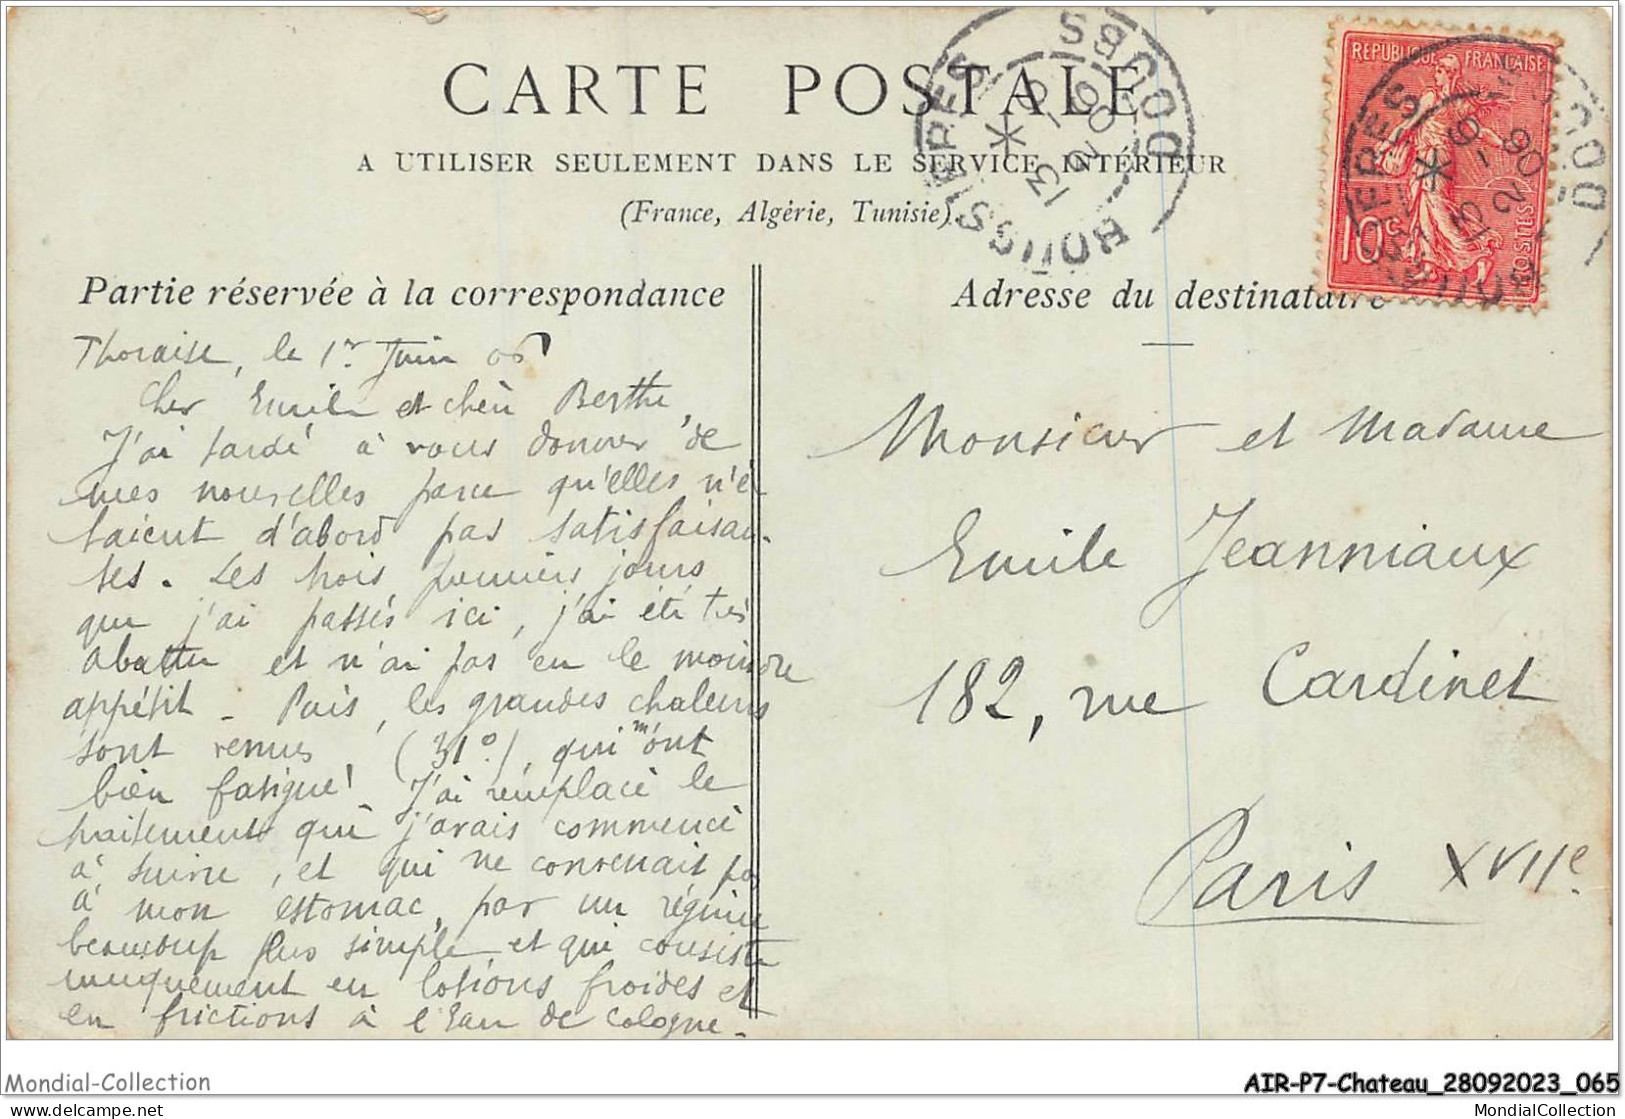 CARTE POSTALE
A UTILISER SEULEMENT DANS LE SERVICE INTÉRIEUR
(France, Algérie, Tunisie).
BOUSSIERES DOUBS
13
2-6
06
REPUBLIQUE FRANÇAISE
10c
POSTES
BOUSSIERES DOUBS
13
2-6
06
Partie réservée à la correspondance
Thoraise, le 1er Juin 06
Cher Emile et chère Berthe,
J'ai tardé à vous donner de
mes nouvelles parce qu'elles n'é
taient d'abord pas satisfaisan-
tes. Les trois premiers jours
que j'ai passés ici, j'ai été très
abattu et n'ai pas eu le moindre
appétit - Puis, les grandes chaleurs
sont venues (31°), qui m'ont
bien fatigué! J'ai remplacé le
traitement que j'avais commencé
à suivre, et qui ne convenait pas
à mon estomac, par un régime
beaucoup plus simple, et qui consiste
uniquement en lotions froides et
en frictions à l'Eau de Cologne -
Adresse du destinataire
Monsieur et Madame
Emile Jeanniaux
182, rue Cardinet
Paris XVIIe
Mondial-Collection
AIR-P7-Chateau_28092023_065
https://www.delcampe.net/fr/collections/store/mondial-collection
MondialCollection